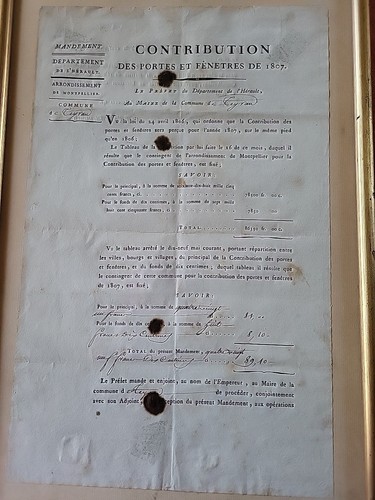 MANDEMENT.
DÉPARTEMENT
DE L'HÉRAULT.
ARRONDISSEMENT
DE MONTPELLIER.
COMMUNE
CONTRIBUTION
DES PORTES ET FENÊTRES DE 1807.
LE PRÉFET du Département de l'Hérault,
Au MAIRE de la Commune d
VU la loi du 24 avril 1806, qui ordonne que la Contribution des
portes et fenêtres sera perçue pour l'année 1807, sur le même pied
qu'en 1806;
Le Tableau de la répartition par lui faite le 16 de ce mois, duquel il
résulte que le contingent de l'arrondissement de Montpellier pour la
Contribution des portes et fenêtres, est fixé;
SAVOIR:
Pour le principal, à la somme de soixante-dix-huit mille cinq
cens francs, ci 78500 00 c.
Pour le fonds de dix centimes, à la somme de sept mille
huit cent cinquante francs, ci 7850
TOTAL 86350 00 c.
Vu le tableau arrêté le dix-neuf mois courant, portant répartition entre
les villes, bourgs et villages, du principal de la Contribution des portes
et fenêtres, et du fonds de dix centimes; duquel tableau il résulte
que le contingent de cette commune pour la contribution des portes et fenêtres
de 1807, est fixé;
SAVOIR:
Pour le principal, à la somme de quatre vingt
un francs 81
Pour le fonds de dix centimes, à la somme de huit
francs dix centimes 8,10
TOTAL du présent Mandement, quatre vingt
neuf francs dix centimes 89,10
Le Préfet mande et enjoint, au nom de l'Empereur, au Maire de la
commune d de procéder, conjointement
avec son Adjoint réception du présent Mandement, aux opérations